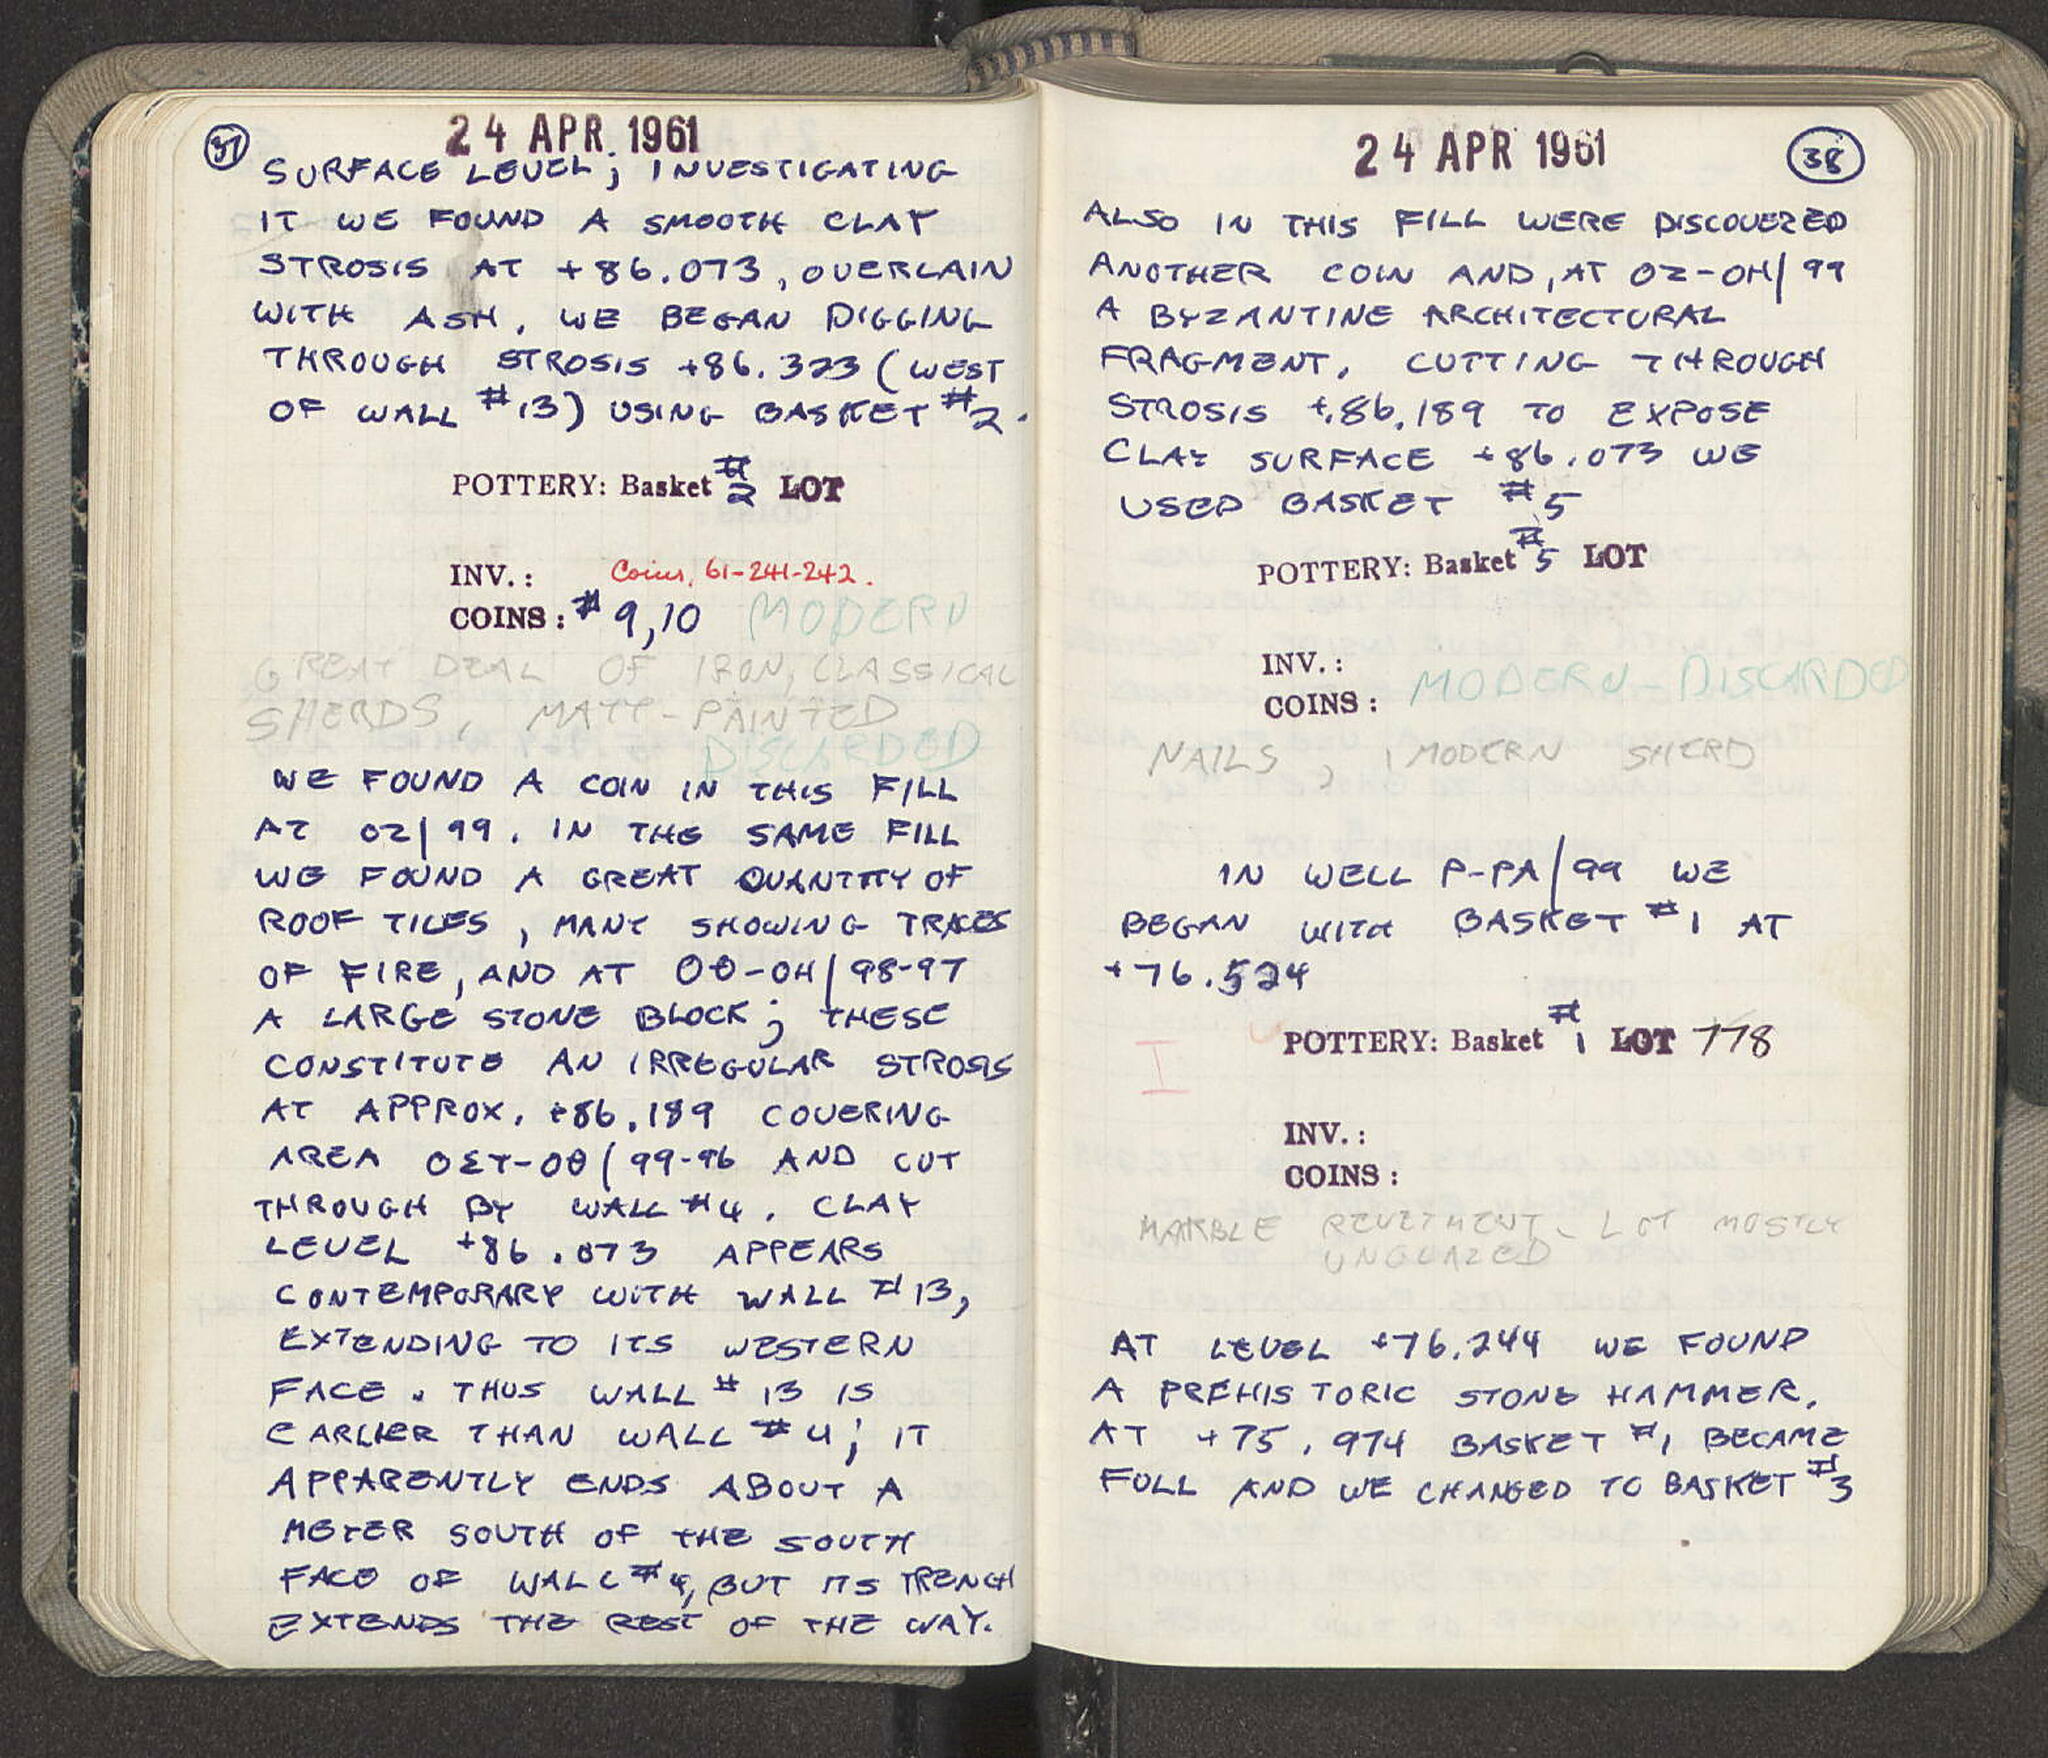 37
24 APR. 1961
SURFACE LEVEL; INVESTIGATING
IT WE FOUND A SMOOTH CLAY
STROSIS AT +86.073, OVERLAIN
WITH ASH. WE BEGAN DIGGING
THROUGH STROSIS +86.323 (WEST
OF WALL #13) USING BASKET #2.
POTTERY: Basket #2 LOT
INV.: Coins, 61-241-242.
COINS: #9,10 MODERN
GREAT DEAL OF IRON, CLASSICAL
SHERDS, MATT-PAINTED
DISCARDED
WE FOUND A COIN IN THIS FILL
AT OZ/99. IN THE SAME FILL
WE FOUND A GREAT QUANTITY OF
ROOF TILES, MANY SHOWING TRACES
OF FIRE, AND AT OΘ-OH/98-97
A LARGE STONE BLOCK; THESE
CONSTITUTE AN IRREGULAR STROSIS
AT APPROX. +86.189 COVERING
AREA OΣT-OΘ/99-96 AND CUT
THROUGH BY WALL #4. CLAY
LEVEL +86.073 APPEARS
CONTEMPORARY WITH WALL #13,
EXTENDING TO ITS WESTERN
FACE. THUS WALL #13 IS
EARLIER THAN WALL #4; IT
APPARENTLY ENDS ABOUT A
METER SOUTH OF THE SOUTH
FACE OF WALL #4, BUT ITS TRENCH
EXTENDS THE REST OF THE WAY.
24 APR 1961
38
ALSO IN THIS FILL WERE DISCOVERED
ANOTHER COIN AND, AT OZ-OH/99
A BYZANTINE ARCHITECTURAL
FRAGMENT. CUTTING THROUGH
STROSIS +86.189 TO EXPOSE
CLAY SURFACE +86.073 WE
USED BASKET #5
POTTERY: Basket #5 LOT
INV.:
COINS: MODERN-DISCARDED
NAILS, 1 MODERN SHERD
IN WELL P-PA/99 WE
BEGAN WITH BASKET #1 AT
+76.524
I POTTERY: Basket #1 LOT 778
INV.:
COINS:
MARBLE REVETMENT. LOT MOSTLY
UNGLAZED
AT LEVEL +76.244 WE FOUND
A PREHISTORIC STONE HAMMER.
AT +75.974 BASKET #1 BECAME
FULL AND WE CHANGED TO BASKET #3